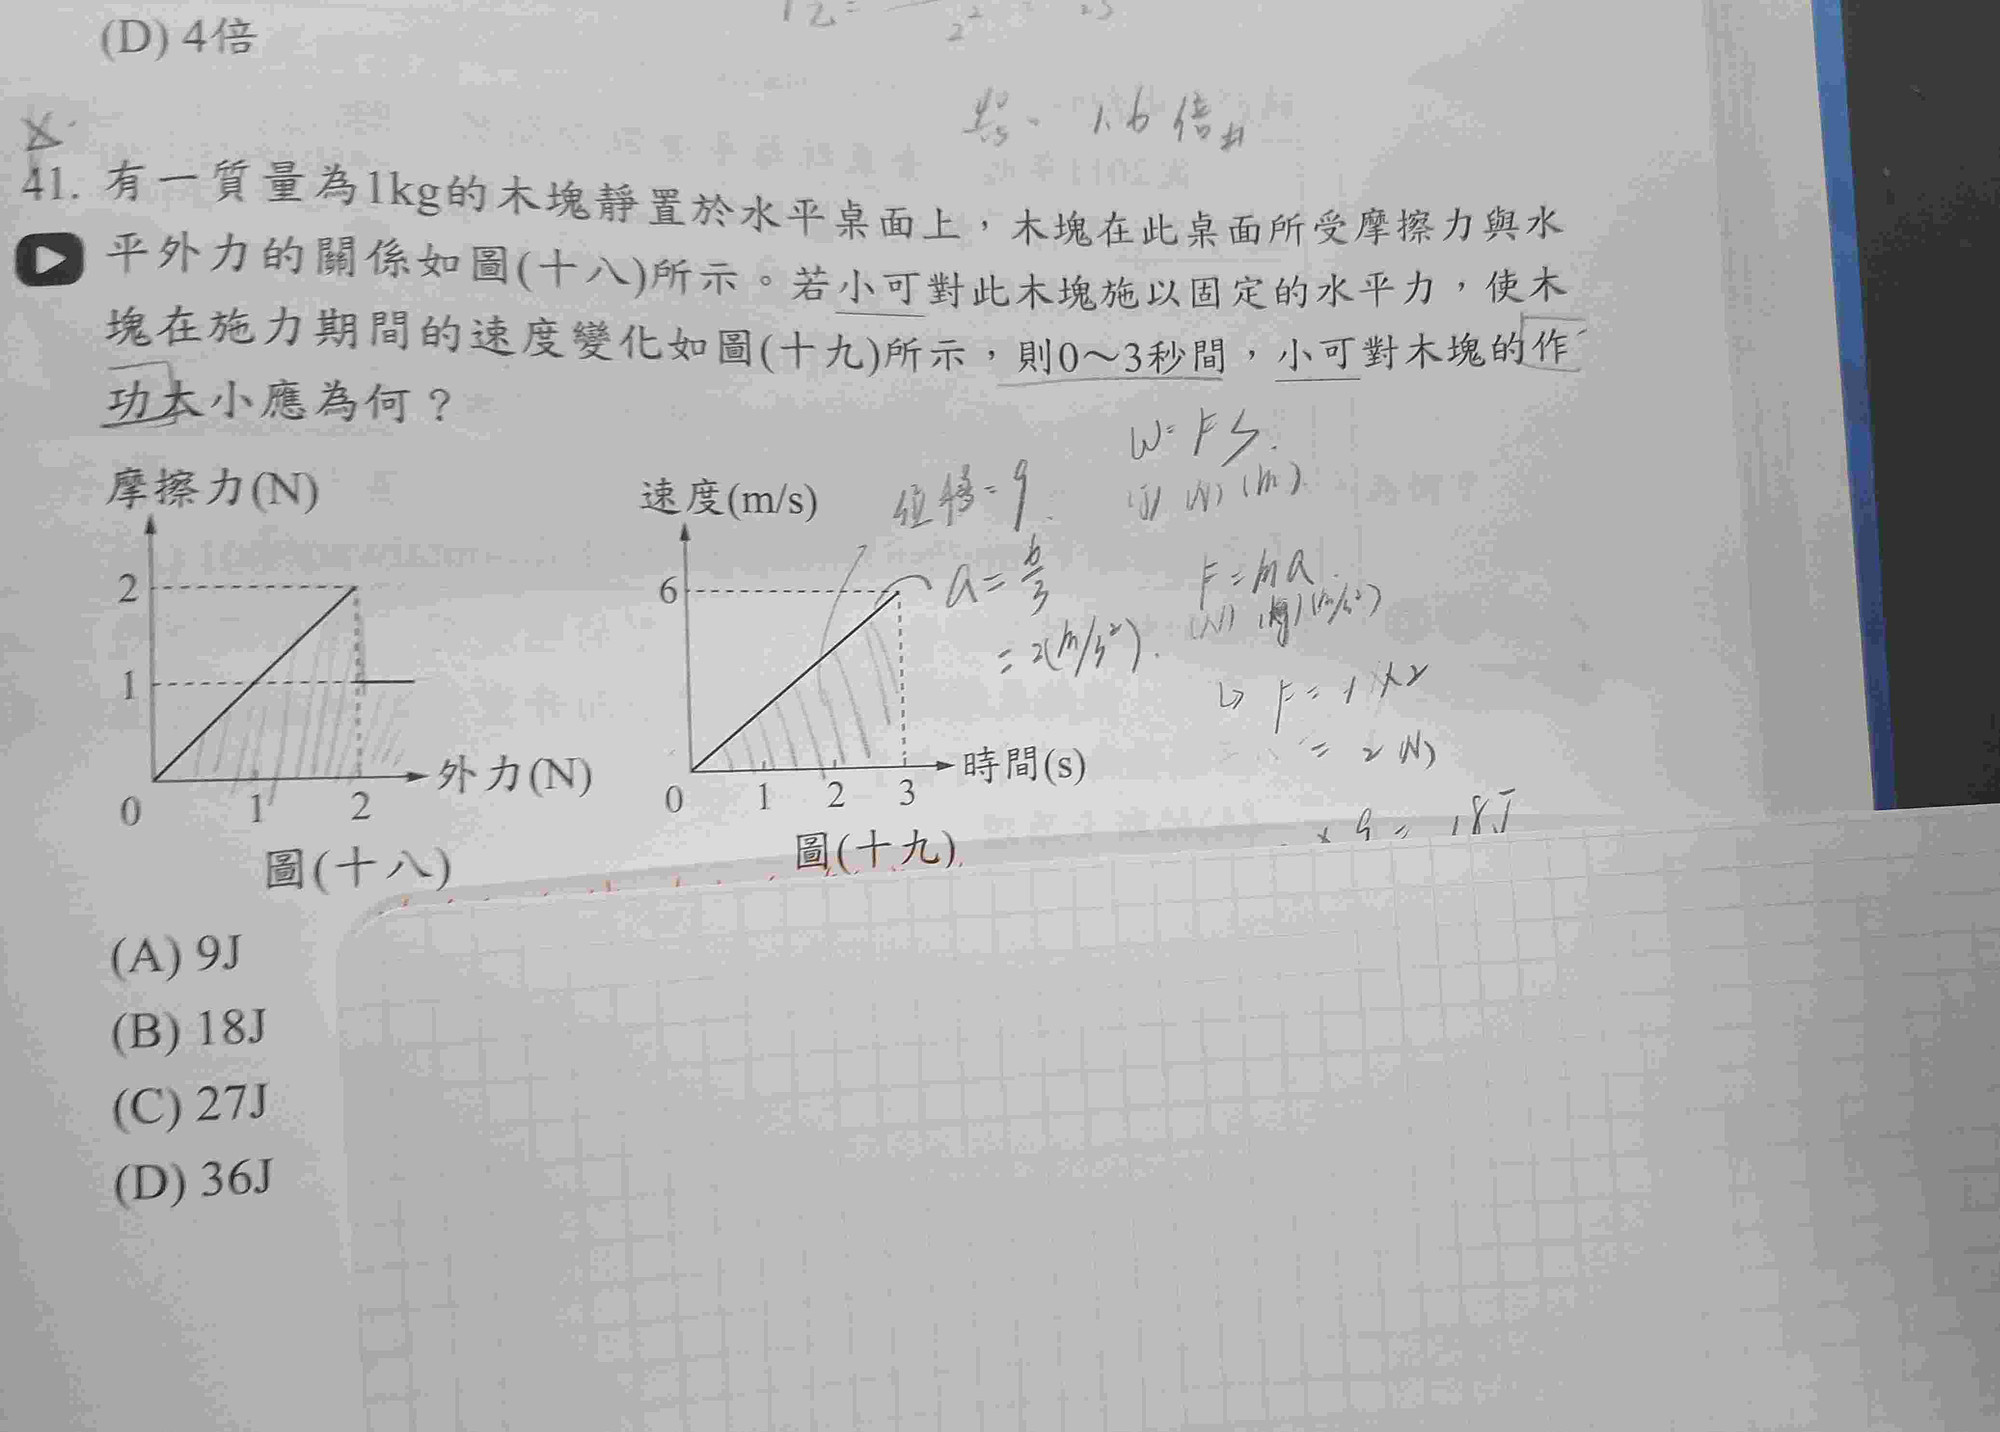 (D) 4倍
答. 1.6倍
41. 有一質量為1kg的木塊靜置於水平桌面上，木塊在此桌面所受摩擦力與水
平外力的關係如圖(十八)所示。若小可對此木塊施以固定的水平力，使木
塊在施力期間的速度變化如圖(十九)所示，則0～3秒間，小可對木塊的作
功大小應為何？
W=FS.
(J) (N) (m)
摩擦力(N)
2
1
0
1
2
外力(N)
圖(十八)
速度(m/s)
6
0
1
2
3
時間(s)
圖(十九)
位移=9
a=6/3
=2(m/s²).
F=ma
(N) (kg) (m/s²)
↳ F=1×2
=2(N)
×9=18J
(A) 9J
(B) 18J
(C) 27J
(D) 36J